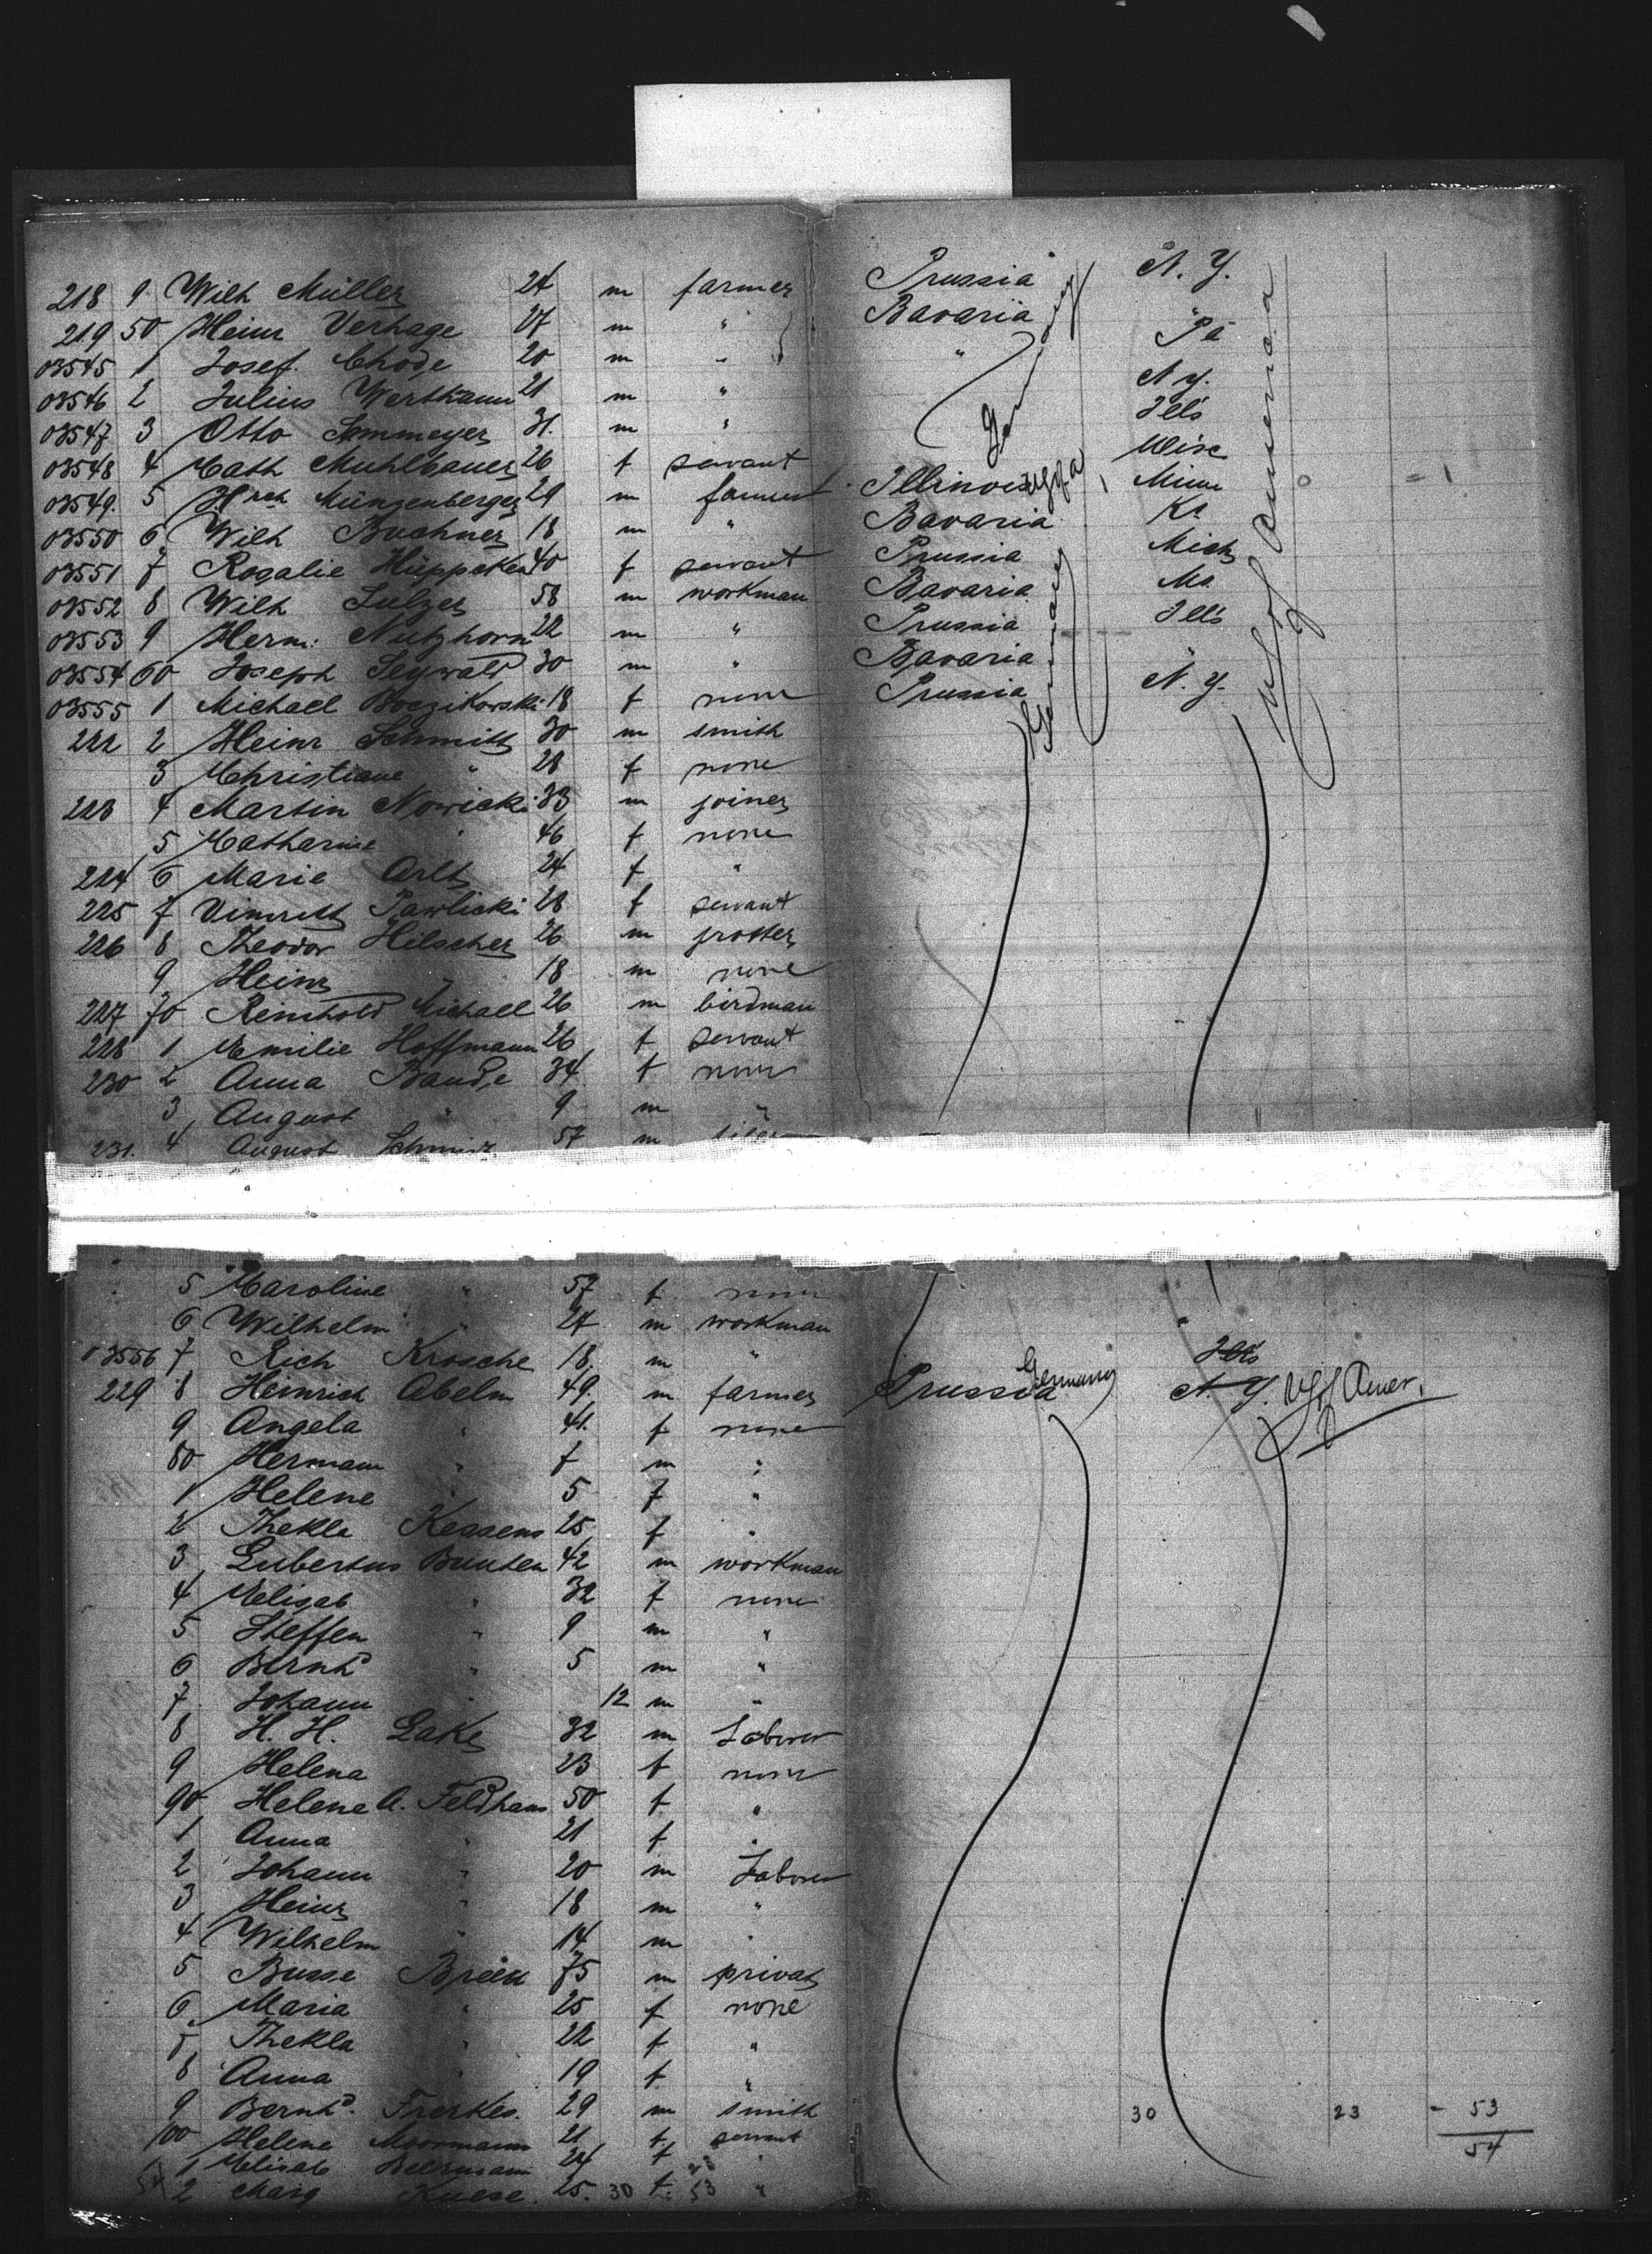 218 9 Wilh Müller 24 m farmer Prussia N. Y.
219 50 Heinr Verhage 27 m " Bavaria "
03545 1 Josef. Chode 20 m " " Pa
03546 2 Julius Werthann 21 m " N Y.
03547 3 Otto Semmeyer 31. m " Ills
03548 4 Cath Muhlbauer 26 f servant Wisc
03549. 5 Hrch Münzenberger 29 m farmer Illinois Minn
03550 6 Wilh Buchner 18 m " Bavaria
03551 7 Rosalie 40 f servant Prussia Mich
03552 8 Wilh Sulzer 58 m workman Bavaria Mo
03553 9 Herm: Nutzhorn 22 m " Prussia Ills
03554 60 Joseph Seywald 30 m " Bavaria "
03555 1 Michael 18 f none Prussia N. Y.
Germany
Germany
U S of America
222 2 Heinr Schmitt 30 m smith
3 Christiane " 28 f none
223 4 Martin Nowicki 33 m joiner
5 Catharine " 46 f none
224 6 Marie Arlt 24 f "
225 7 Pawlicki 28 f servant
226 8 Theodor Hilscher 26 m
9 Heinr " 18 m none
227 70 Reinhold Michael 26 m birdman
228 1 Emilie Hoffmann 26 f servant
230 2 Anna Baude 34 f none
3 August " 9 m "
231. 4 August Schmidt 57 m
5 Caroline " 57 f none
6 Wilhelm " 24 m workman
03556 7 Rich Krosche 18. m " Ills
229 8 Heinrich Abeln 49. m farmer Prussia Germany N. Y. U S of Amer.
9 Angela " 41. f none
80 Hermann " 7 m "
1 Helene " 5 f "
2 Thekla Kessens 25 f "
3 Lubertus Bunten 42 m workman
4 Elisab " 32 f none
5 Steffen " 9 m "
6 Bernhd " 5 m "
7 Johann " 12 m "
8 H. H. Lake 32 m Laborer
9 Helena " 23 f none
90 Helene A. Feldhaus 50 f "
1 Anna " 21 f "
2 Johann " 20 m Laborer
3 Heinr " 18 m "
4 Wilhelm " 14 m "
5 Busse 75 m privat
6 Maria " 25 f none
7 Thekla " 22 f "
8 Anna " 19 f "
9 Bernhd. Frerkes. 29 m smith 30 23 - 53
100 Helene Moormann 21 f servant 54
1 Elisab 24 f "
54 2 Marg 25. 30 f. 53 "